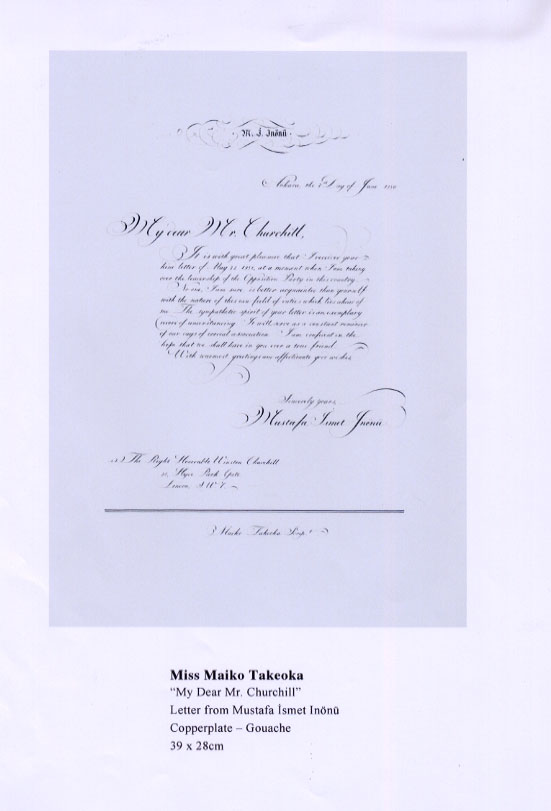 M. İ. İnönü
Ankara, the Day of June
My dear Mr. Churchill,
It is with great pleasure that I receive your
kind letter of May 22, at a moment when I am taking
over the leadership of the Opposition Party in this country.
No one, I am sure, is better acquainted than yourself
with the nature of this new field of which lies ahead of
me. The sympathetic spirit of your letter is an exemplary
of understanding. It will serve as a constant reminder
of our days of association. I am confident in the
hope that we shall have in you ever a true friend.
With warmest greetings and affectionate good wishes
Sincerely yours,
Mustafa İsmet İnönü
The Right Honorable Winston Churchill
Hyde Park Gate
London, S W 7.
Maiko Takeoka
Miss Maiko Takeoka
“My Dear Mr. Churchill”
Letter from Mustafa İsmet Inönü
Copperplate – Gouache
39 x 28cm